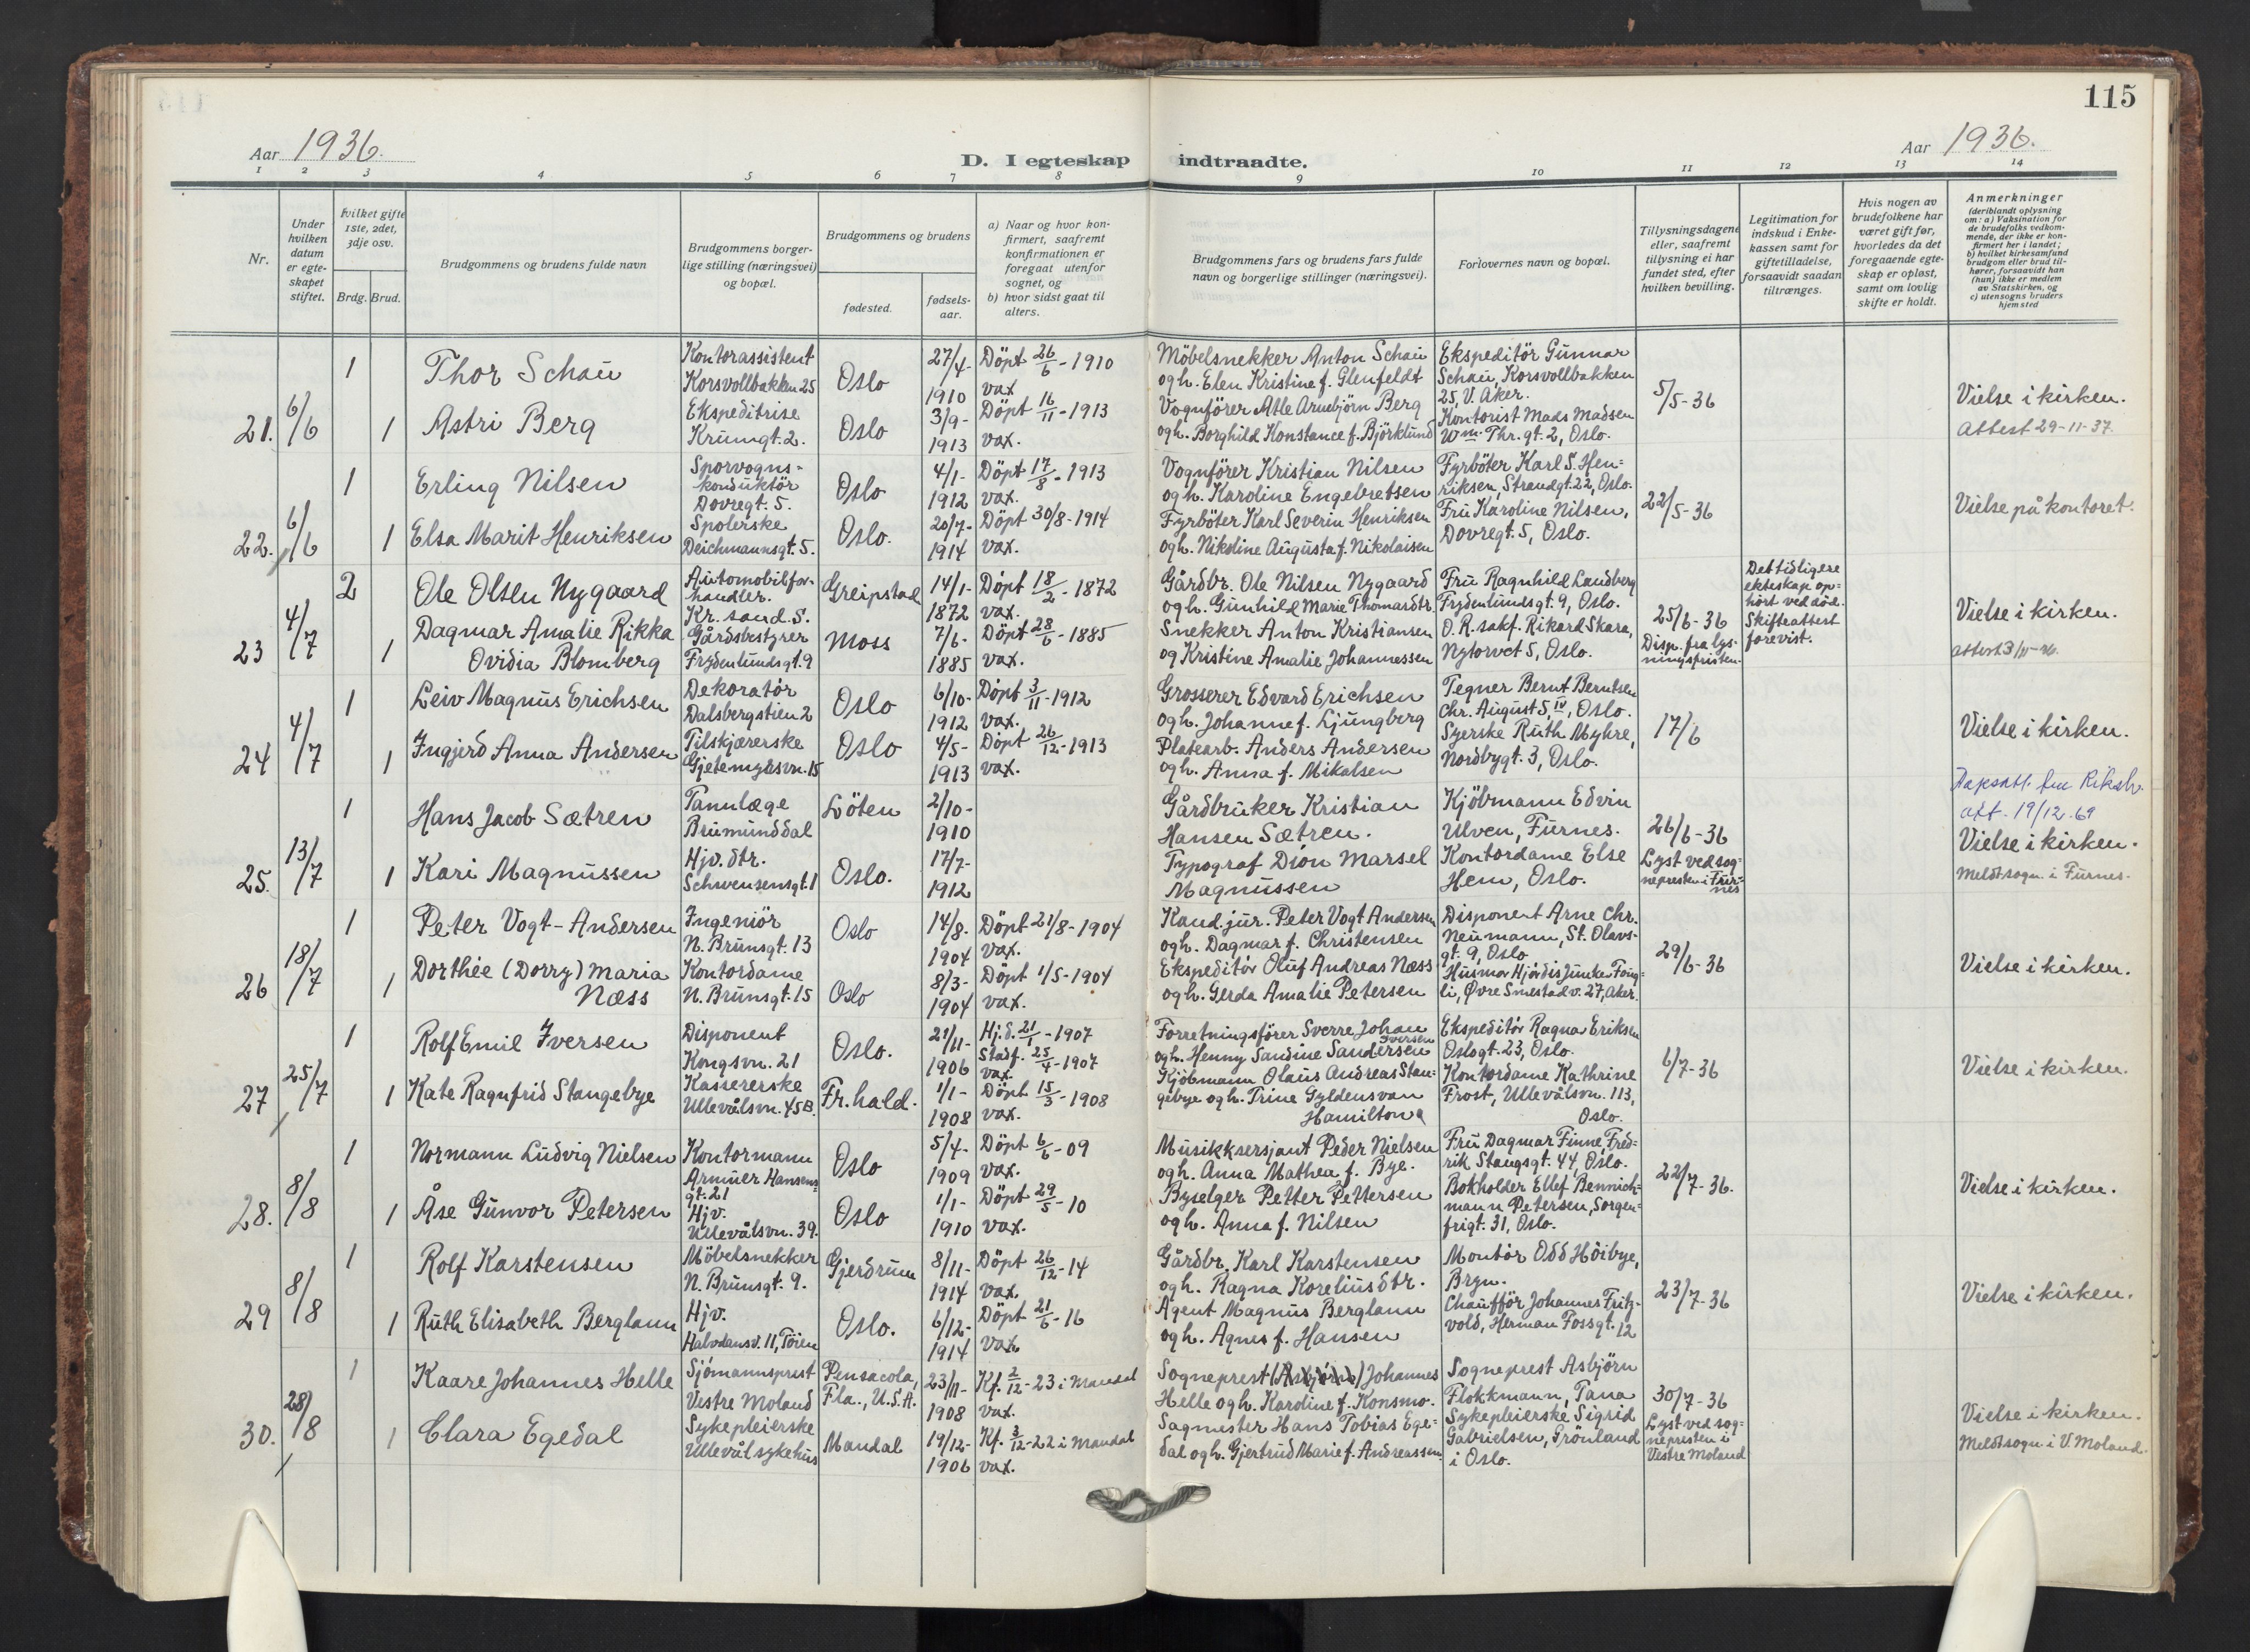 115
Aar 1936.
Aar 1936.
D. I egteskap indtraadte.
1 2 3 4 5 6 7 8 9 10 11 12 13 14
Nr.
Under hvilken datum er egteskapet stiftet.
hvilket gifte 1ste, 2det, 3dje osv.
Brdg. Brud.
Brudgommens og brudens fulde navn
Brudgommens borgerlige stilling (næringsvei) og bopæl.
Brudgommens og brudens
fødested.
fødselsaar.
a) Naar og hvor konfirmert, saafremt konfirmationen er foregaat utenfor sognet, og
b) hvor sidst gaat til alters.
Brudgommens fars og brudens fars fulde navn og borgerlige stillinger (næringsvei).
Forlovernes navn og bopæl.
Tillysningsdagene eller, saafremt tillysning ei har fundet sted, efter hvilken bevilling.
Legitimation for indskud i Enkekassen samt for giftetilladelse, forsaavidt saadan tiltrænges.
Hvis nogen av brudefolkene har været gift før, hvorledes da det foregaaende egteskap er opløst, samt om lovlig skifte er holdt.
Anmerkninger (deriblandt oplysning om: a) Vaksination for de brudefolks vedkommende, der ikke er konfirmert her i landet; b) hvilket kirkesamfund brudgom eller brud tilhører, forsaavidt han (hun) ikke er medlem av Statskirken, og c) utensogns bruders hjemsted
21. 6/6
1 Thor Schau
Kontorassistent Korsvollbakken 25
Oslo
27/4-1910
Döpt 26/6-1910 vax
Möbelsnekker Anton Schau
og h. Elen Kristine f. Glenfeldt
Ekspeditör Gunnar Schau, Korsvollbakken 25, V. Aker.
5/5-36
Vielse i kirken.
Attest 29-11-37.
1 Astri Berg
Ekspeditrise Krumgt. 2.
Oslo
3/9-1913
Döpt 16/11-1913 vax.
Vognförer Atle Arnebjörn Berg
og h. Borghild Konstance f. Björklund
Kontorist Mads Madsen Wm. Thr. gt. 2, Oslo.
22. 6/6
1 Erling Nilsen
Sporvognskonduktör Dovregt. 5.
Oslo
4/1-1912
Döpt 17/8-1913 vax.
Vognförer Kristian Nilsen
og h. Karoline Engebretsen
Fyrböter Karl S. Henriksen, Strandgt. 22, Oslo.
22/5-36
Vielse på kontoret.
1 Elsa Marit Henriksen
Spolerske Deichmannsgt. 5.
Oslo.
20/7-1914
Döpt 30/8-1914 vax.
Fyrböter Karl Severin Henriksen
og h. Nikoline Augusta f. Nikolaisen
Fru Karoline Nilsen, Dovregt. 5, Oslo.
23 4/7
2 Ole Olsen Nygaard
Automobilforhandler. Kr. sand. S.
Greipstad
14/1-1872
Döpt 18/2-1872 vax.
Gårdbr. Ole Nilsen Nygaard
og h. Gunhild Marie Thomasdtr.
Fru Ragnhild Landberg Frydenlundsgt. 9, Oslo.
25/6-36
Disp. fra lysningsfristen.
Det tidligere ekteskap ophört ved död. Skifteattest forevist.
Vielse i kirken.
1 Dagmar Amalie Rikka Ovidia Blomberg
Gårdsbestyrer Frydenlundsgt. 9
Moss
7/6-1885
Döpt 28/6-1885 vax.
Snekker Anton Kristiansen
og Kristine Amalie Johannessen
O. R. sakf. Rikard Skara, Nytorvet 5, Oslo.
24 4/7
1 Leiv Magnus Erichsen
Dekoratör Dalsbergstien 2
Oslo
6/10-1912
Döpt 3/11-1912 vax.
Grosserer Edvard Erichsen
og h. Johanne f. Ljungberg
Tegner Bernt Berntsen Chr. August 5, IV, Oslo.
17/6
Vielse i kirken.
1 Ingjerd Anna Andersen
Tilskjærerske Gjetemyrsvn. 15
Oslo
4/5-1913
Döpt 26/12-1913 vax.
Platearb. Anders Andersen
og h. Anna f. Mikalsen
Syerske Ruth Myhre, Nordbygt. 3, Oslo.
25. 13/7
1 Hans Jacob Sætren
Tannlæge Brumunddal
Löten
2/10-1910
Gårdbruker Kristian Hansen Sætren.
Kjöbmann Edvin Ulven, Furnes.
26/6-36
Lyst ved sognepresten i Furnes
att. 19/12.69
Vielse i kirken.
Meldt sogn. i Furnes.
1 Kari Magnussen
Hjv. dtr. Schwensensgt. 1
Oslo.
17/7-1912
Typograf Dion Marsel Magnussen
Kontordame Else Hem, Oslo.
26 18/7
1 Peter Vogt-Andersen
Ingeniör N. Brunsgt. 13
Oslo
14/8.1904
Döpt 21/8-1904 vax.
Kand. jur. Peter Vogt Andersen
og h. Dagmar f. Christensen
Disponent Arne Chr. Neumann, St. Olavsgt. 9, Oslo
29/6-36
Vielse i kirken.
1 Dorthée (Dorry) Maria Næss
Kontordame N. Brunsgt. 15
Oslo
8/3-1904
Döpt 1/5-1904 vax.
Ekspeditör Oluf Andreas Næss
og h. Gerda Amalie Petersen
Husmor Hjördis Juncker Fougli, Øvre Smestadv. 27, Aker.
27 25/7
1 Rolf Emil Iversen
Disponent Kongsvn. 21
Oslo.
21/11-1906
Hj. d. 21/1-1907 Stadf. 25/4-1907 vax.
Forretningsförer Sverre Johan Iversen
og h. Henny Sandine Sandersen
Ekspeditör Ragnar Eriksen Oslogt. 23, Oslo.
6/7-36
Vielse i kirken.
1 Kate Ragnfrid Stangebye
Kassererske Ullevålsvn. 45B.
Fr.hald.
1/1-1908
Döpt 15/3-1908 vax.
Kjöbmann Olaus Andreas Stangebye og h. Trine Gyldensvan Hamilton
Kontordame Kathrine Frost, Ullevålsvn. 113, Oslo.
28. 8/8
1 Normann Ludvig Nielsen
Kontormann Armuer Hansensgt. 21
Oslo
5/4-1909
Döpt 6/6-09 vax.
Musikksersjant Peder Nielsen
og h. Anna Mathea f. Bye.
Fru Dagmar Finne, Fredrik Stangsgt. 44, Oslo.
22/7-36.
Vielse i kirken.
1 Åse Gunvor Petersen
Hjv. Ullevålsvn. 39.
Oslo
1/1-1910
Döpt 29/5-10 vax.
Byselger Petter Pettersen
og h. Anna f. Nilsen
Bokholder Ellef Bennichmann Petersen, Sorgenfrigt. 31, Oslo.
29 8/8
1 Rolf Karstensen
Möbelsnekker N. Brunsgt. 9.
Gjerdrum
8/11-1914
Döpt 26/12-14 vax.
Gårdbr. Karl Karstensen
og h. Ragna Koreliusdtr.
Montör Odd Höibye, Bryn.
23/7-36
Vielse i kirken.
1 Ruth Elisabeth Berglann
Hjv. Halvdansv. 11, Töien
Oslo.
6/12-1914
Döpt 21/6-16 vax
Agent Magnus Berglann
og h. Agnes f. Hansen
Chaufför Johannes Fritzvold, Herman Fossgt. 12
30. 28/8
1 Kaare Johannes Helle
Sjömannsprest Vestre Moland
Pensacola, Fla., U.S.A.
23/11-1908
Kf. 2/12-23 i Mandal vax.
Sogneprest (Asbjörn) Johannes Helle og h. Karoline f. Konsmo.
Sogneprest Asbjörn Flokkmann, Tana
30/7-36
Lyst ved sognepresten i Vestre Moland
Vielse i kirken.
Meldt sogn. i V. Moland.
1 Clara Egedal
Sykepleierske Ullevål sykehus
Mandal
19/12-1906
Kf. 3/12-22 i Mandal vax.
Sagmester Hans Tobias Egedal og h. Gjertrud Marie f. Andreassen.
Sykepleierske Sigrid Gabrielsen, Grönland i Oslo.